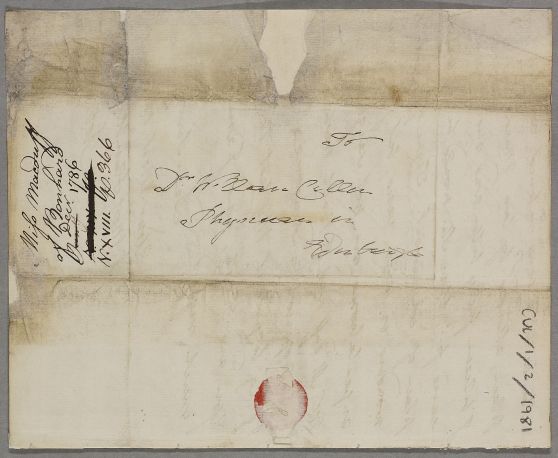 To
Dr William Cullen
Physician in
Edinburgh
Miss Macduff
of Bonhard
Decr. 1786
V. XVIII. p. 366
CUL/1/2/1981